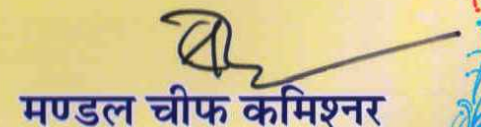 मण्डल चीफ कमिश्नर